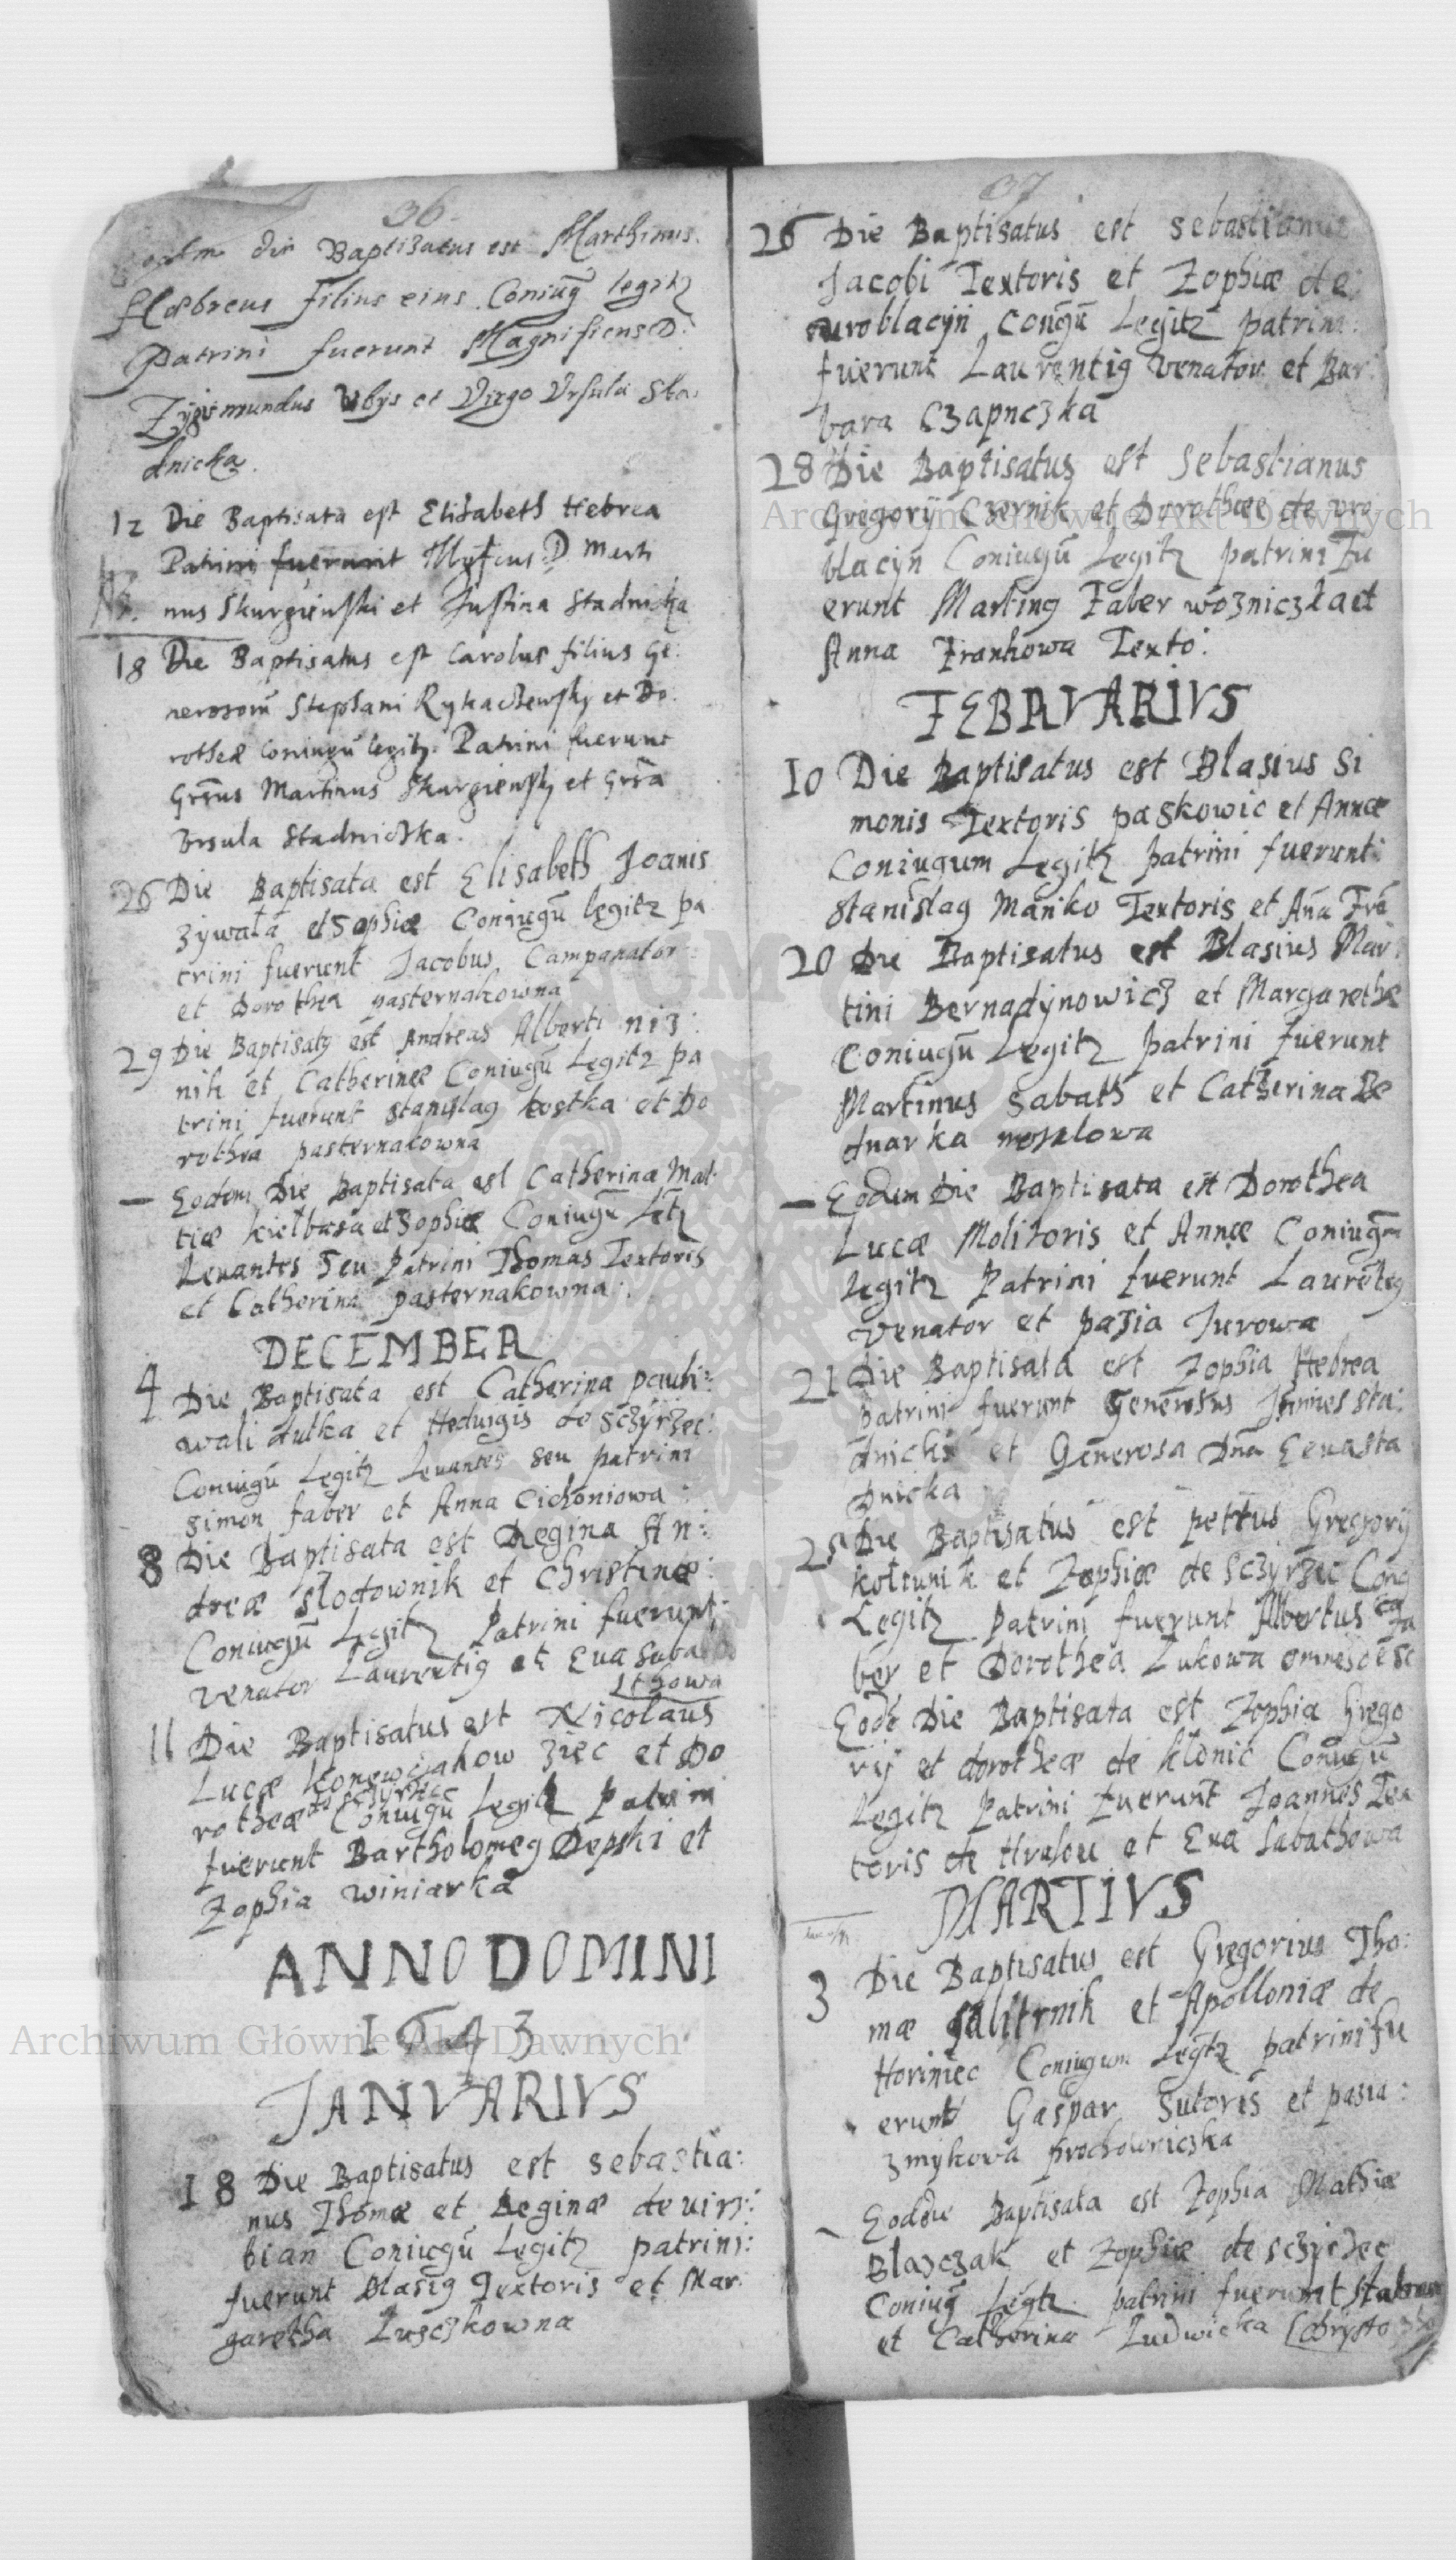 36
Eodem die Baptisatus est Marthinus
Hæbreus filius eius Coniug legitz
Patrini fuerunt Magnificus D:
Zygismundus et Virgo Ursula Sta:
dnicka.
12 Die Baptisata est Elisabeth Hebrea
Patrini fuerunt D Marti
nus Skurgienski et Justina Stadnicka
18 Die Baptisatus est Carolus filius Ge:
nerosorū Stephani et Do
rotheæ Coniugū legitz. Patrini fuerunt
Grsus Martinus Skurgiensky et Grsa
Ursula Stadniczka.
26 Die Baptisata est Elisabeth Joanis
zywała et Sophiæ Coniugū legitz pa
trini fuerunt Jacobus Campanator:
et Dorothea pasternakowna
29 Die Baptisatg est Andreas Alberti niz:
nik et Catherinæ Coniugū Legitz pa
trini fuerunt stanislag kostka et Do
rothea pasternakowna
— Eodem Die Baptisata est Catherina Mat:
tiæ kiełbasa et Sophiæ Coniugū
Leuantes seu Patrini Thomas Textoris
et Catherina pasternakowna:
DECEMBER
4 Die Baptisata est Catherina
wali dutka et Heduigis de Sczyrzec:
Coniugū Legitz Leuantes seu patrini
simon faber et Anna Cichoniowa:
8 Die Baptisata est Regina An:
dreæ Słodownik et Christinæ:
Coniugū Legitz Patrini fuerunt
venator Laurentig et Eua Saba
thowa
11 Die Baptisatus est Nicolaus
Lucæ ziec et Do
de sczyrzec
rotheæ Coniugū Legitz Patrini
fuerunt Bartholomeg Depski et
Zophia winiarka
ANNO DOMINI
1643
JANVARIVS
18 Die Baptisatus est sebastia:
nus Thomæ et Reginæ de uirz:
bian Coniugū Legitz patrini:
fuerunt Blasig Textoris et Mar
garetha Łusczkowna
37
26 Die Baptisatus est sebastianus
Jacobi Textoris et Zophiæ de
wroblacyn Congū Legitz patrini:
fuerunt Laurentig venator et Bar:
bara Czapnczka
28 Die Baptisatus est Sebastianus
Gregorij Czernik et Dorotheæ de wro
blacyn Coniugū Legitz patrini Fu
erunt Marting Faber wozniczka et
Anna Frankowa Texto:
FEBRVARIVS
10 Die Baptisatus est Blasius Si
monis Textoris paskowic et Annæ
Coniugum Legitz patrini fuerunt:
stanislag Manko Textoris et Aña Frā
20 Die Baptisatus est Blasius Mar:
tini Bernadynowicz et Margarethæ
Coniugū Legitz patrini fuerunt
Martinus Sabath et Catherina Be
dnarka
— Eodem Die Baptisata est Dorothea
Lucæ Molitoris et Annæ Coniugū
legitz Patrini fuerunt Laurētig
venator et pasia Jurowa
21 Die Baptisata est Zophia Hebrea
patrini fuerunt Generosus Joannes Sta:
dnicki et Generosa Dña Eua Sta
dnicka
25 Die Baptisatus est petrus Gregorij
kołtunik et Zophiæ de Sczyrzec Cong
Legitz Patrini fuerunt Albertus Fa
ber et Dorothea Łukowa omnes de sc
Eodē Die Baptisata est Zophia Grego
rij et dorotheæ de klonic Coniugū
Legitz Patrini fuerunt Joannes Tex
toris de et Eua Sabathowa
MARTIVS
3 Die Baptisatus est Gregorius Tho:
mæ salitrnik et Apolloniæ de
Horiniec Coniugum Legitz patrini fu
erunt Gaspar Sutoris et pasia:
zmykowa prochowniczka
— Eoddie Baptisata est Zophia Mathiæ
Blasczak et Zophiæ de sczyrzec
Coniug Legtz patrini fuerunt
et Catherina Ludwicka